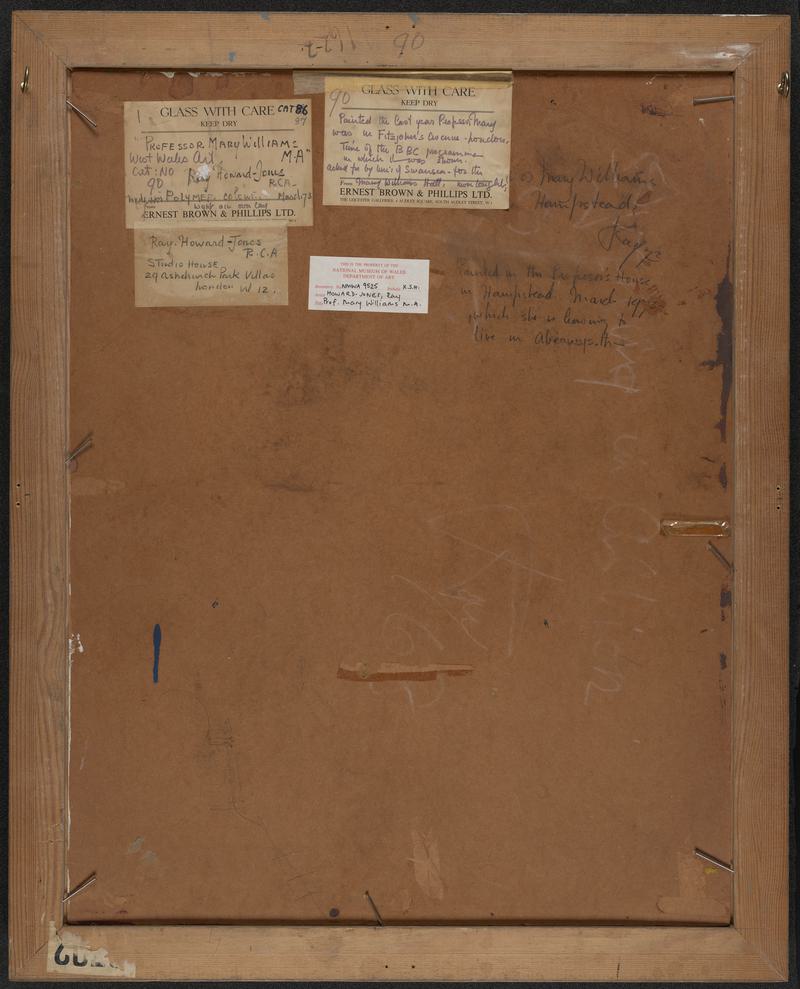 90
GLASS WITH CARE CAT 86
87
KEEP DRY
"PROFESSOR MARY WILLIAMS
M.A"
West Wales Art
Cat: No Ray Howard-Jones
90 R.C.A.
Medium: Polymer colour March 73
From
ERNEST BROWN & PHILLIPS LTD.
Ray. Howard-Jones
R.C.A
STUDIO HOUSE
29 Ashchurch Park Villas
London W 12.
90
GLASS WITH CARE
KEEP DRY
Painted the last year Professor Mary
was in Fitzjohn's Avenue - London,
Time of the BBC programme
in which it was shown.
asked for by Univ: of Swansea - for the
From Mary Williams Hall,
ERNEST BROWN & PHILLIPS LTD.
THE LEICESTER GALLERIES, 4 AUDLEY SQUARE, SOUTH AUDLEY STREET, W.1
THIS IS THE PROPERTY OF THE
NATIONAL MUSEUM OF WALES
DEPARTMENT OF ART
NMWA 9525 K.S.H.
HOWARD-JONES, Ray
Prof. Mary Williams M.A.
or Mary Williams
Hampstead,
Ray
Painted in the Professor's House
in Hampstead. March 19
which she is leaving to
live in Aberystwyth